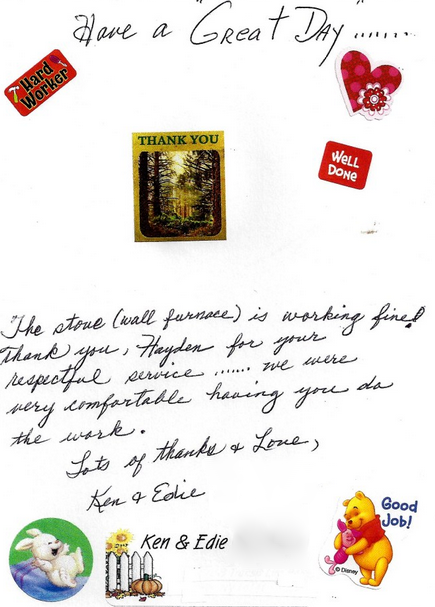 Have a "Great Day".......
Hard
Worker
THANK YOU
Well
Done
"The stove (wall furnace) is working fine!
Thank you, Hayden for your
respectful service ...... we were
very comfortable having you do
the work.
Lots of thanks & Love,
Ken & Edie
Good
Job!
Ken & Edie
© Disney